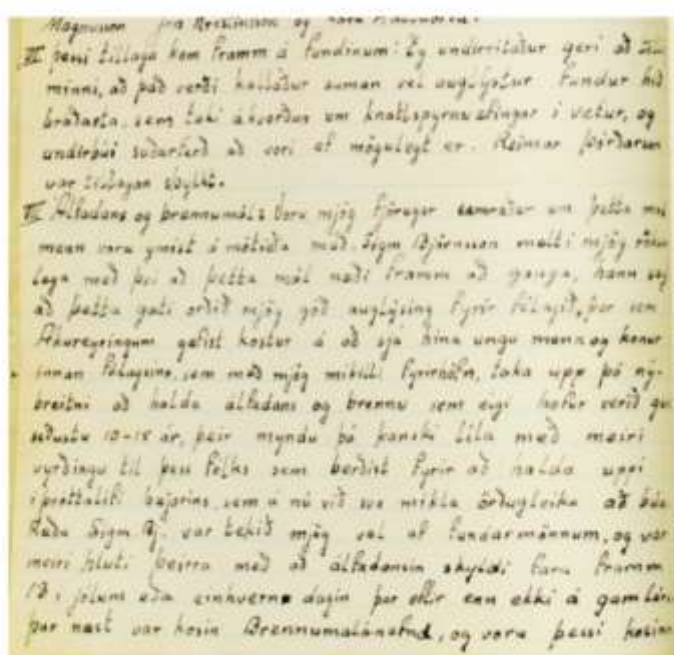 Magnusson frá
III þessi tillaga kom framm á fundinum: Eg undirritaður geri að
minni, að það verði kallaður saman vel auglýstur fundur hið
bráðasta, sem taki ákvörðun um knattspyrnuæfingar í vetur, og
undirbúi suðurferð að vori ef mögulegt er. Reimar Þórðarson
var tillagan sþykt.
IV Álfadans og brennumáls Voru mjög fjörugar samræður um þetta mál
menn voru ymist á móti eða með. Sigm Björnsson mælti mjög
lega með því að þetta mál næði framm að ganga, hann
að þetta gæti orðið mjög góð auglýsing fyrir félagið, þar sem
Akureyringum gefist kostur á að sjá hina ungu menn og konur
innan félagsins, sem með mjög mikilli fyrirhöfn, taka upp þá ný-
breitni að halda álfadans og brennu sem eigi hefur verið
seðustu 10-15 ár, þeir myndu þá kanski líta með meiri
vyrðingu til þess fólks sem berðist fyrir að halda uppi
íþróttalífi bæjarins, sem á nú við svo mikla örðugleika að búa
Ræðu Sigm. Bj. var tekið mjög vel af fundarmönnum, og var
meiri hluti þeirra með að álfadansin skyldi fara framm
13. í jólum eða einhvern dagin þar eftir enn ekki á gamlárs
þar næst var kosin Brennumálanefnd, og voru þessi kosin